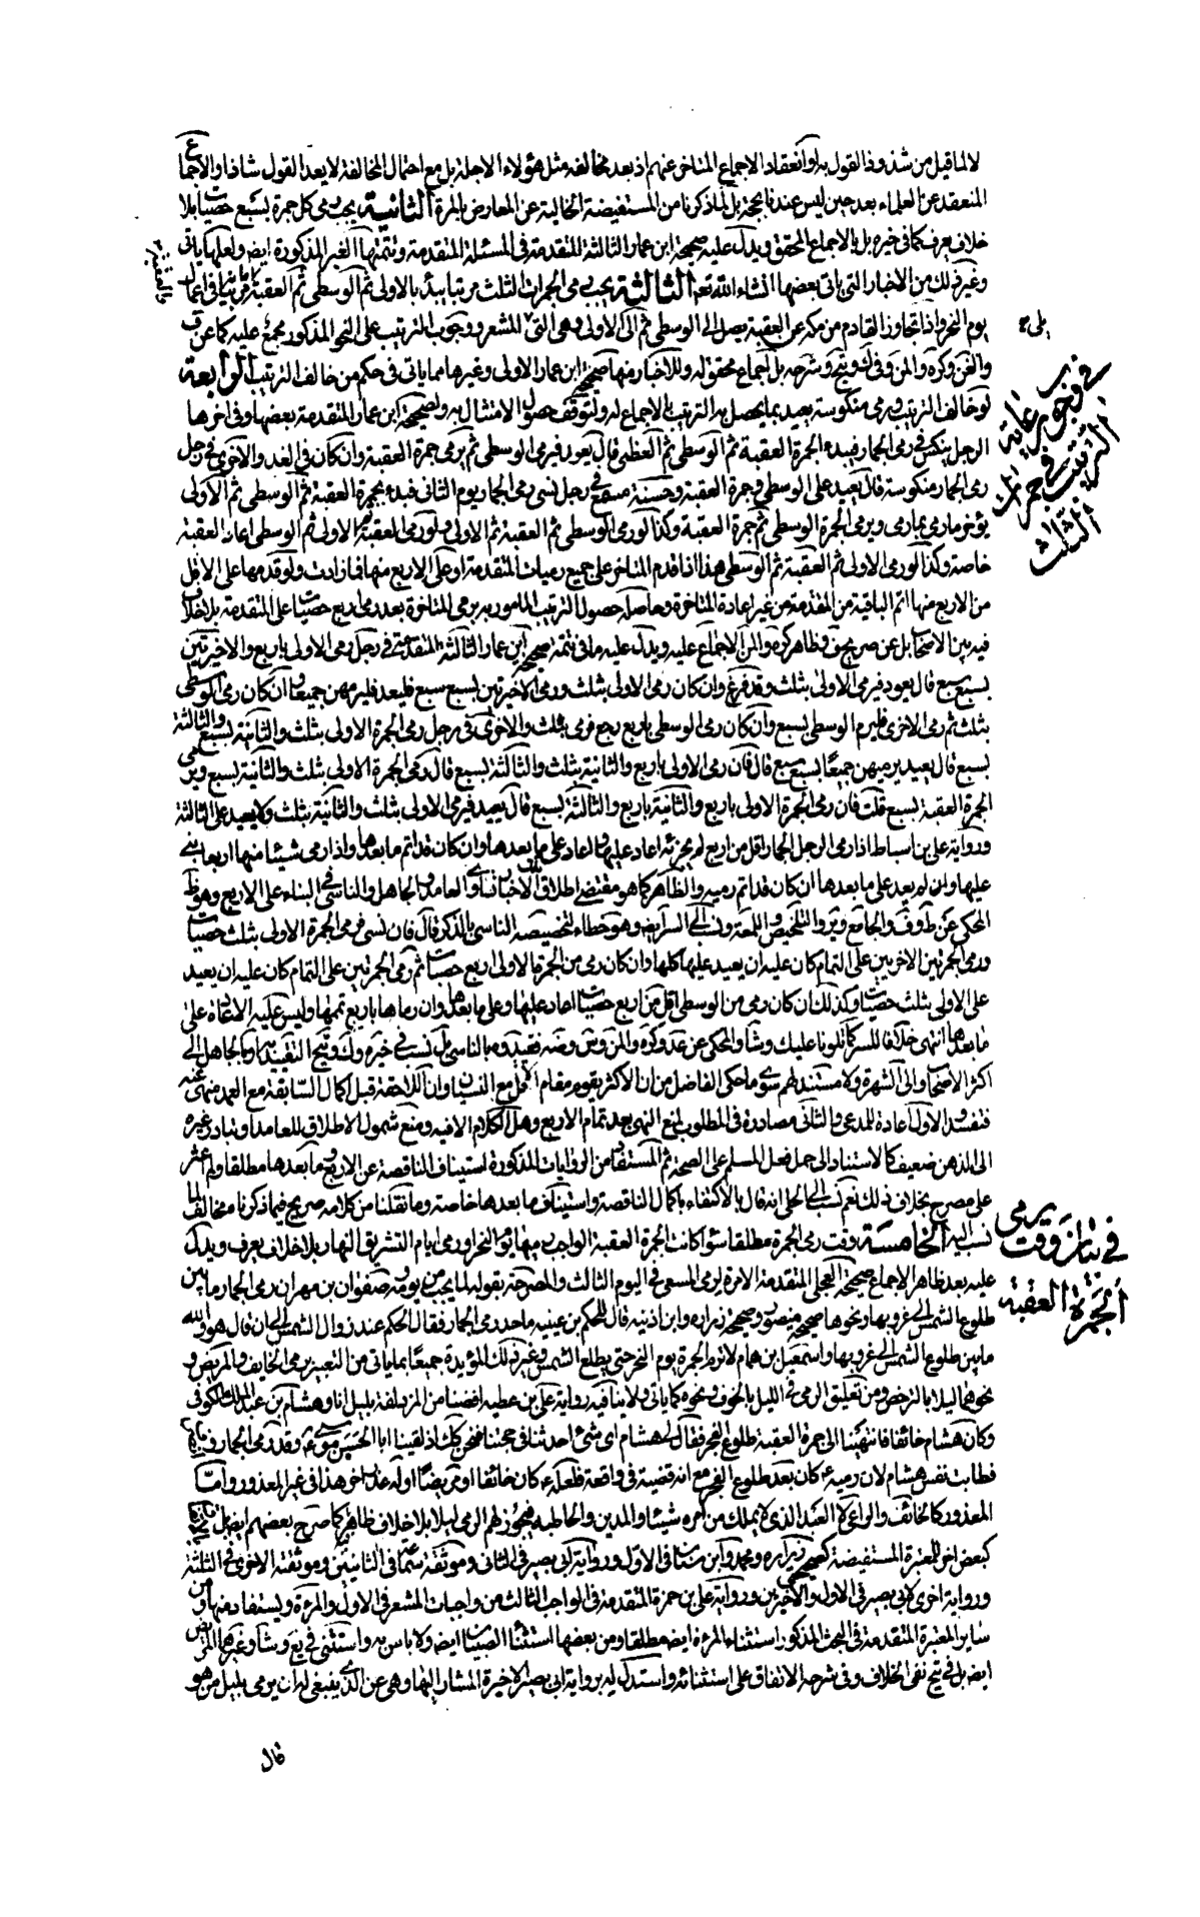 لا لما قيل من شذوذ القول به او انعقاد الاجماع المتاخر عنهم اذ بعد مخالفة مثل هؤلاء الاجلة بل مع احتمال المخالفة لا يعد القول شاذا والاجماع
المنعقد عن العلماء بعد حين ليس عندنا بحجة بل لما ذكرنا من المستفيضة الخالية عن المعارض بالمرة الثانية يجب رمي كل جمرة بسبع حصيات بلا
خلاف يعرف كما في خيره بل بالاجماع المحقق ويدل عليه صحيحة ابن عمار الثالثة المتقدمة في المسئلة المتقدمة وتتمتها الغير المذكورة ايضا ولعلها ياتي
وغير ذلك من الاخبار التي ياتي بعضها انشاء الله تعم الثالثة يجب رمي الجمرات الثلث مرتبا يبدأ بالاولى ثم الوسطى ثم العقبة
يوم النحر واذا تجاوز القادم من مكة عن العقبة يصل الى الوسطى ثم الى الاولى وهي التي تلي المشعر ووجوب الترتيب على النحو المذكور مجمع عليه كما عن
وشرحه بل اجماع محقق له وللاخبار منها صحيحة ابن عمار الاولى وغيرها مما ياتي في حكم من خالف الترتيب الرابعة
لو خالف الترتيب ورمى منكوسة يعيد بما يحصل به الترتيب بالاجماع له ولتوقف حصول الامتثال به ولصحيحة ابن عمار المتقدمة بعضها وفي اخرها
الرجل ينكس في رمي الجمار فيبدء بالجمرة العقبة ثم الوسطى ثم العظمى قال يعود فيرمي الوسطى ثم يرمي جمرة العقبة وان كان في الغد والاخرى في رجل
رمى الجمار منكوسة قال يعيد على الوسطى وجمرة العقبة وحسنة مسمع في رجل نسي رمي الجمار يوم الثاني فبدء بجمرة العقبة ثم الوسطى ثم الاولى
يؤخر ما رمى بما رمى ويرمي الجمرة الوسطى ثم جمرة العقبة وكذا لو رمى الوسطى ثم العقبة ثم الاولى ولو رمى العقبة ثم الاولى ثم الوسطى اعاد العقبة
خاصة وكذا لو رمى الاولى ثم العقبة ثم الوسطى هذا اذا قدم المتاخر على جميع رميات المتقدمة او على الاربع منها فما زادت ولو قدمها على الاقل
من الاربع منها اتم الباقية من المقدمة من غير اعادة المتاخرة وحاصله حصول الترتيب المامور به برمي المتاخرة بعد رمي اربع حصيات على المتقدمة بلا خلاف
فيه بين الاصحاب بل عن صريح وظاهر كره الاجماع عليه ويدل عليه ما في تتمة صحيحة ابن عمار الثالثة المتقدمة في رجل رمى الاولى باربع والاخيرتين
بسبع سبع قال يعود فيرمي الاولى بثلث وقد فرغ وان كان رمى الاولى بثلث ورمى الاخيرتين بسبع سبع فليعد فليرمهن جميعا وان كان رمى الوسطى
بثلث ثم رمى الاخرى فليرم الوسطى بسبع وان كان رمى الوسطى باربع رجع فرمى بثلث والاخرى في رجل رمى الجمرة الاولى بثلث والثانية بسبع والثالثة
بسبع قال يعيد يرميهن جميعا بسبع سبع قال فان رمى الاولى باربع والثانية بثلث والثالثة بسبع قال رمى الجمرة الاولى بثلث والثانية بسبع ويرمي
الجمرة العقبة بسبع قلت فان رمى الجمرة الاولى باربع والثانية باربع والثالثة بسبع قال يعيد فيرمي الاولى بثلث والثانية بثلث ولا يعيد على الثالثة
ورواية علي بن اسباط اذا رمى الرجل الجمار اقل من اربع لم يجزئه اعاد عليها واعاد على ما بعدها وان كان قد اتم ما بعدها واذا رمى شيئا منها اربعا بنى
عليها ولم يعد على ما بعدها ان كان قد اتم رميه والظاهر كما هو مقتضى اطلاق الاخبار تساوي العامد والجاهل والناسي في البناء على الاربع وهو ظ
المحكي عن والجامع والتلخيص واللمعة وهو خطاء لتخصيصه الناسي بالذكر قال فان نسي فرمى الجمرة الاولى بثلث حصيات
ورمى الجمرتين الاخريين على التمام كان عليه ان يعيد عليها كلها وان كان رمى من الجمرة الاولى اربع حصيات ثم رمى الجمرتين على التمام كان عليه ان يعيد
على الاولى بثلث حصيات وكذلك ان كان رمى من الوسطى اقل من اربع حصيات اعاد عليها وعلى ما بعدها وان رماها باربع تممها وليس عليه الاعادة على
ما بعدها انتهى خلافا
اكثر الاصحاب والى الشهرة ولا مستند لهم سوى ما حكي الفاضل من ان الاكثر يقوم مقام الكل مع النسيان وان اللاحقة قبل اكمال السابقة مع العمد منهي عنه
فتفسد والاول اعادة للمدعى والثاني مصادرة في المطلوب لمنع النهي بعد تمام الاربع وهل الكلام الا فيه ومنع شمول الاطلاق للعامد او تبادر غيره
الى الذهن ضعيف كالاستناد الى حمل فعل المسلم على الصحة ثم المستفاد من الروايات المذكورة استيناف الناقصة عن الاربع وما بعدها مطلقا ولم اعثر
على مصرح بخلاف ذلك نعم نسب الى الحلي انه قال بالاكتفاء باكمال الناقصة واستيناف ما بعدها خاصة وما نقلنا من كلامه صريح فيما ذكرنا مخالف لما
نسب اليه الخامسة وقت رمي الجمرة مطلقا سواء كانت الجمرة العقبة الواجب رميها يوم النحر او رمي ايام التشريق النهار بلا خلاف يعرف ويدل
عليه بعد ظاهر الاجماع صحيحة العجلي المتقدمة الامرة برمي المنسي في اليوم الثالث والمصرحة بقوله لما يجب من يومه وصفوان بن مهران رمي الجمار ما بين
طلوع الشمس الى غروبها ونحوها صحيحة منصور وصحيحة زرارة وابن اذينة قال للحكم بن عيينة ما حد رمي الجمار فقال الحكم عند زوال الشمس الى ان قال هو والله
ما بين طلوع الشمس الى غروبها واسمعيل بن همام لا ترم الجمرة يوم النحر حتى يطلع الشمس وغير ذلك المؤيدة جميعا بما ياتي من التعبير برمي الخايف والمريض و
نحوهما ليلا بالترخص ومن تعليق الرمي في الليل بالخوف ونحوه كما ياتي ولا ينافيه رواية علي بن عطية افضنا من المزدلفة بليل انا وهشام بن عبد الملك الكوفي
وكان هشام خائفا فانتهينا الى جمرة العقبة طلوع الفجر فقال لي هشام اي شيء احدثنا في حجتنا فنحن كك اذ لقينا ابا الحسن موسى ع وقد رمى الجمار
فطابت نفس هشام لان رميه ع كان بعد طلوع الفجر مع انه قضية في واقعة فلعله ع كان خائفا او مريضا او له عذر اخر هذا في غير المعذور واما
المعذور كالخائف والراعي والعبد الذي لا يملك من امره شيئا والمدين والحاطبة فيجوز لهم الرمي ليلا بلا خلاف ظاهر كما صرح بعضهم ايضا بل
كبعض اخر للمعتبرة المستفيضة كصحيح زرارة ومحمد وابن سنان في الاول ورواية ابي بصير في الثاني وموثقة سماعة في الثانيتين وموثقته الاخرى في الثلثة
ورواية اخرى لابي بصير في الاول والاخيرين ورواية علي بن حمزة المتقدمة في الواجب الثالث من واجبات المشعر في الاول والمرءة ويستفاد منها ومن
ساير المعتبرة المتقدمة في البحث المذكور استثناء المرءة ايضا مطلقا ومن بعضها استثناء الصبيان ايضا ولا باس به واستثنى في وغيرها المريض
ايضا بل في نفي الخلاف وفي شرحه الاتفاق على استثنائه واستدل له برواية ابي بصير الاخيرة المشار اليها وهي عن الذي ينبغي له ان يرمي بليل من هو
قال
في وجوب رعاية
الترتيب في جمرات
الثلث
في بيان وقت رمي
الجمرة العقبة